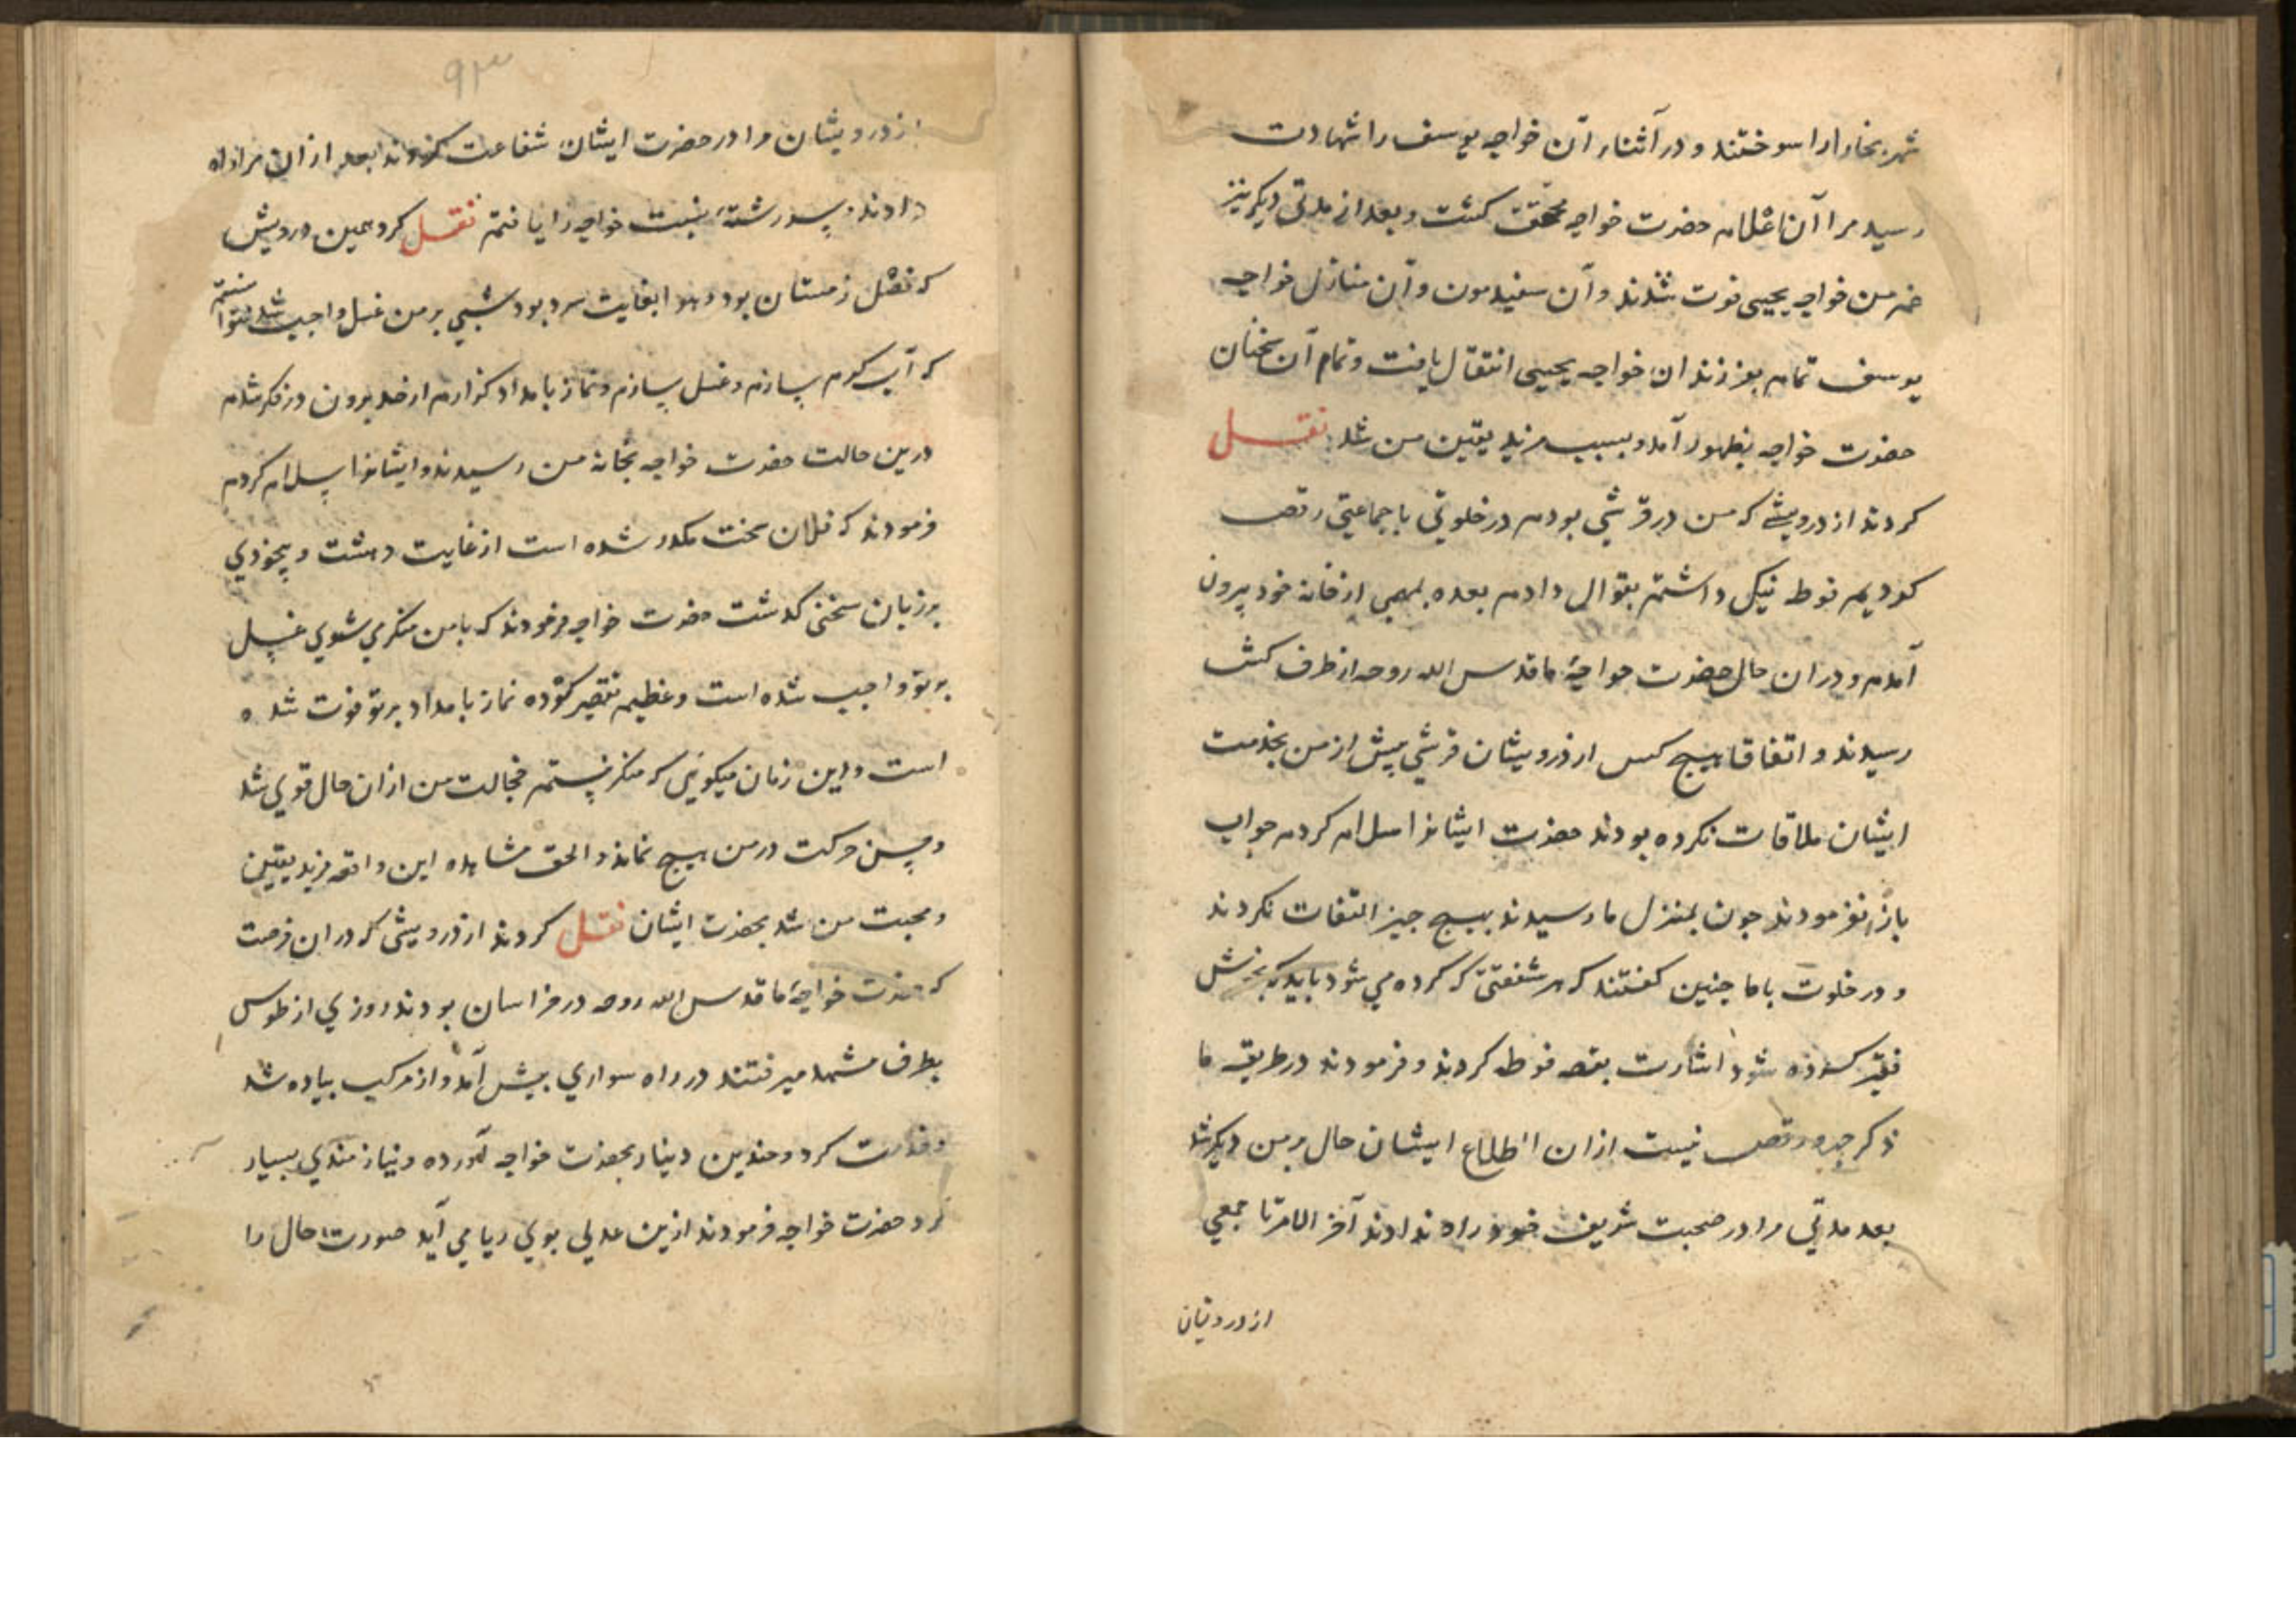 شهر بخارا را سوختند و در آثنار آن خواجه یوسف را شهادت
رسید مرا آن اعلام حضرت خواجه محقق کشت و بعد از مدتی دیکر نیز
خسر من خواجه یحیی فوت شدند و آن سفیدمون و آن منازل خواجه
یوسف تمام بفرزندان خواجه یحیی انتقال یافت و تمام آن سخنان
حضرت خواجه بظهور آمد و بسبب مزید یقین من شد نقل
کردند از درویشی که من در قرشی بودم در خلوتی با جماعتی رقص
کردیم فوطه نیکی داشتم بقوال دادم بعده بمهمی از خانه خود بیرون
آمدم و در ان حال حضرت خواجهٔ ما قدس الله روحه از طرف کش
رسیدند و اتفاقا هیچ کس از درویشان قرشی پیش از من بخدمت
ایشان ملاقات نکرده بودند حضرت ایشانرا سلام کردم جواب
باز نفرمودند جون بمنزل ما رسیدند بهیچ جیز التفات نکردند
و در خلوت با ما جنین کفتند که هر شفقتی که کرده می شود باید که بخش
فقیر کرده شود اشارت بقصه فوطه کردند و فرمودند در طریقه ما
ذکر جهر و رقص نیست ازان اطلاع ایشان حال بر من دیکر شد
بعد مدتی مرا در صحبت شریف خود راه ندادند آخر الامر تا جمعی
از درویشان
۹۳
از درویشان مرا در حضرت ایشان شفاعت کردند بعد از ان مرا راه
دادند و سررشتهٔ نسبت خواجه را یافتم نقل کرد همین درویش
که فصل زمستان بود و هوا بغایت سرد بود شبی بر من غسل واجب شد نتوانستم
که آب کرم سازم و غسل سازم و نماز بامداد کزارم از خد بیرون در فکر شدم
درین حالت حضرت خواجه بخانه من رسیدند و ایشانرا سلام کردم
فرمودند که فلان سخت مکدر شده است از غایت دهشت و بیخودی
بر زبان سخنی کذشت حضرت خواجه فرمودند که با من منکر می شوی غسل
بر تو واجب شده است و عظیم تقصیر کرده نماز بامداد بر تو فوت شده
است و این زمان میکویی که منکر نیستم خجالت من ازان حال قوی شد
و حس و حرکت در من هیچ نماند و الحق مشاهده این واقعه مزید یقین
و محبت من شد بحضرت ایشان نقل کردند از درویشی که دران فرصت
که حضرت خواجهٔ ما قدس الله روحه در خراسان بودند روزی از طوس
بطرف مشهد میرفتند در راه سواری بیش آمد و از مرکب بیاده شد
و خدمت کرد و جندین دینار بحضرت خواجه آورده و نیازمندی بسیار
کرد حضرت خواجه فرمودند ازین عدلی بوی ریا می آید صورت حال را